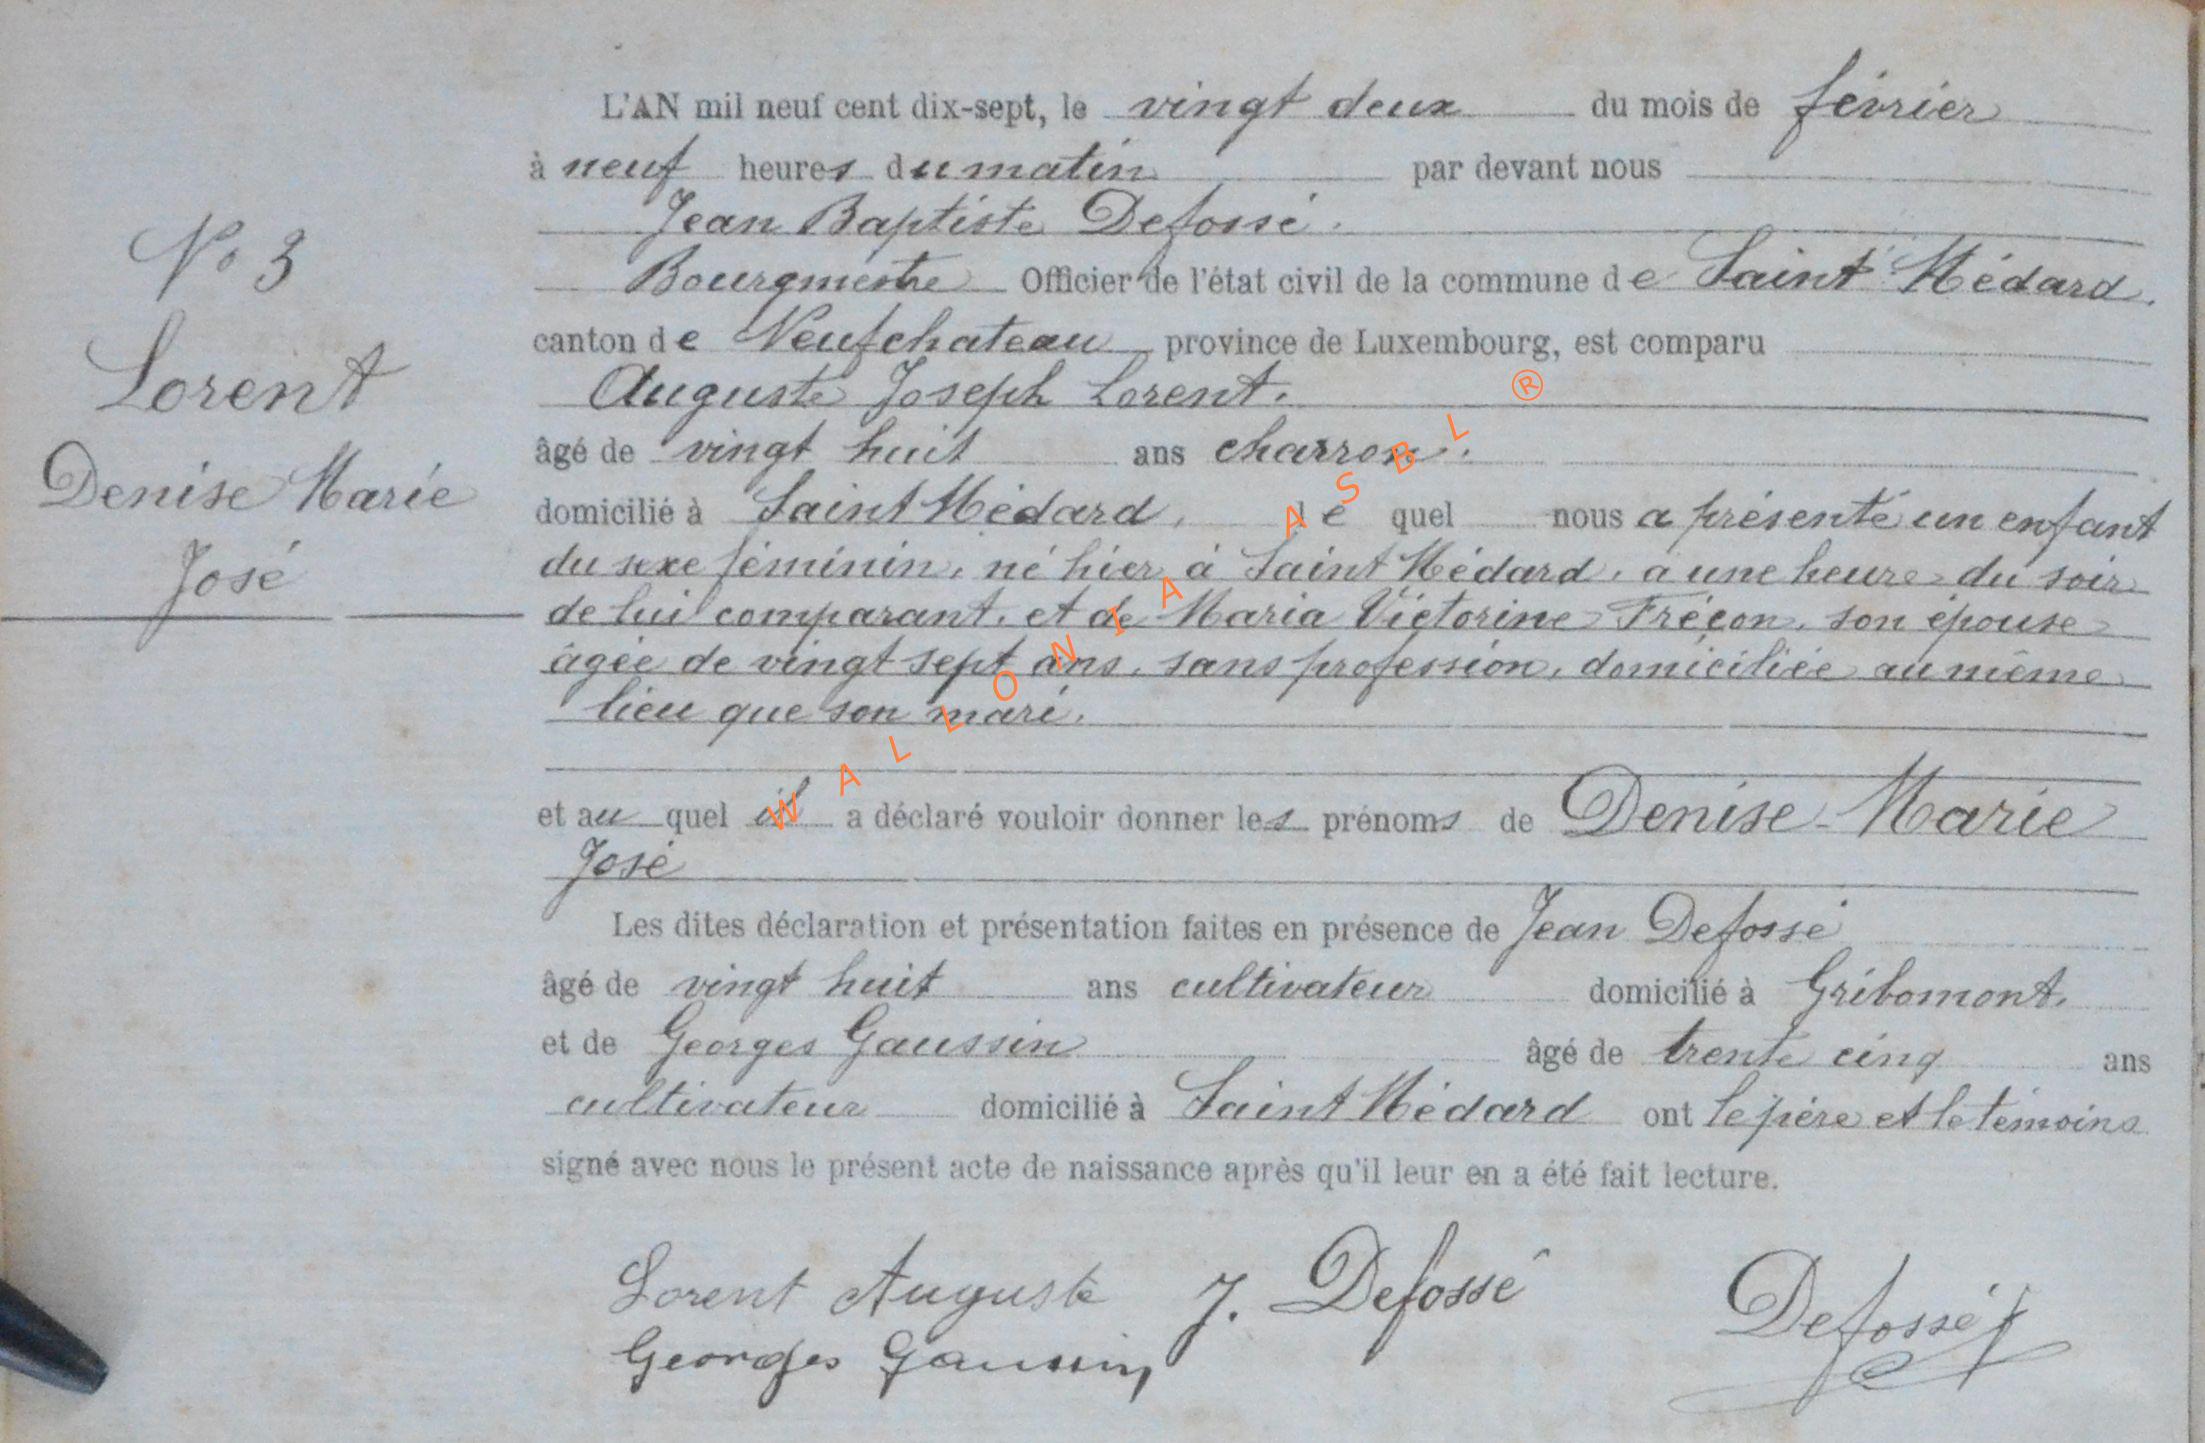 N° 3
Lorent
Denise Marie
José
L'AN mil neuf cent dix-sept, le vingt deux du mois de février
à neuf heures du matin par devant nous
Jean Baptiste Defossé.
Bourgmestre Officier de l'état civil de la commune de Saint Médard.
canton de Neufchateau province de Luxembourg, est comparu
Auguste Joseph Lorent.
âgé de vingt huit ans charron.
domicilié à Saint Médard, le quel nous a présenté un enfant
du sexe féminin, né hier à Saint Médard, à une heure du soir
de lui comparant, et de Maria Victorine Fréçon, son épouse
âgée de vingt sept ans, sans profession, domiciliée au même
lieu que son mari.
et au quel il a déclaré vouloir donner les prénoms de Denise Marie
José
Les dites déclaration et présentation faites en présence de Jean Defossé
âgé de vingt huit ans cultivateur domicilié à Gribomont,
et de Georges Gaussin âgé de trente cinq ans
cultivateur domicilié à Saint Médard ont le père et le témoins
signé avec nous le présent acte de naissance après qu'il leur en a été fait lecture.
Lorent Auguste J. Defossé Defossé
Georges Gaussin
WALLONIA ASBL ®